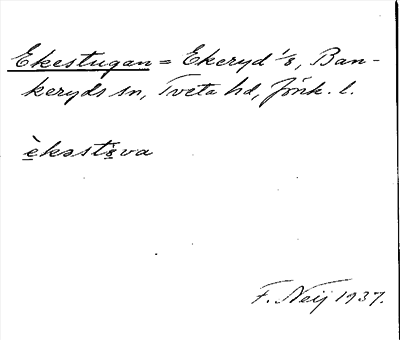 Ekestugan = Ekeryd 1/8, Ban-
keryds sn, Tveta hd, Jönk. l.
èkəstɵva
F. Neij 1937.